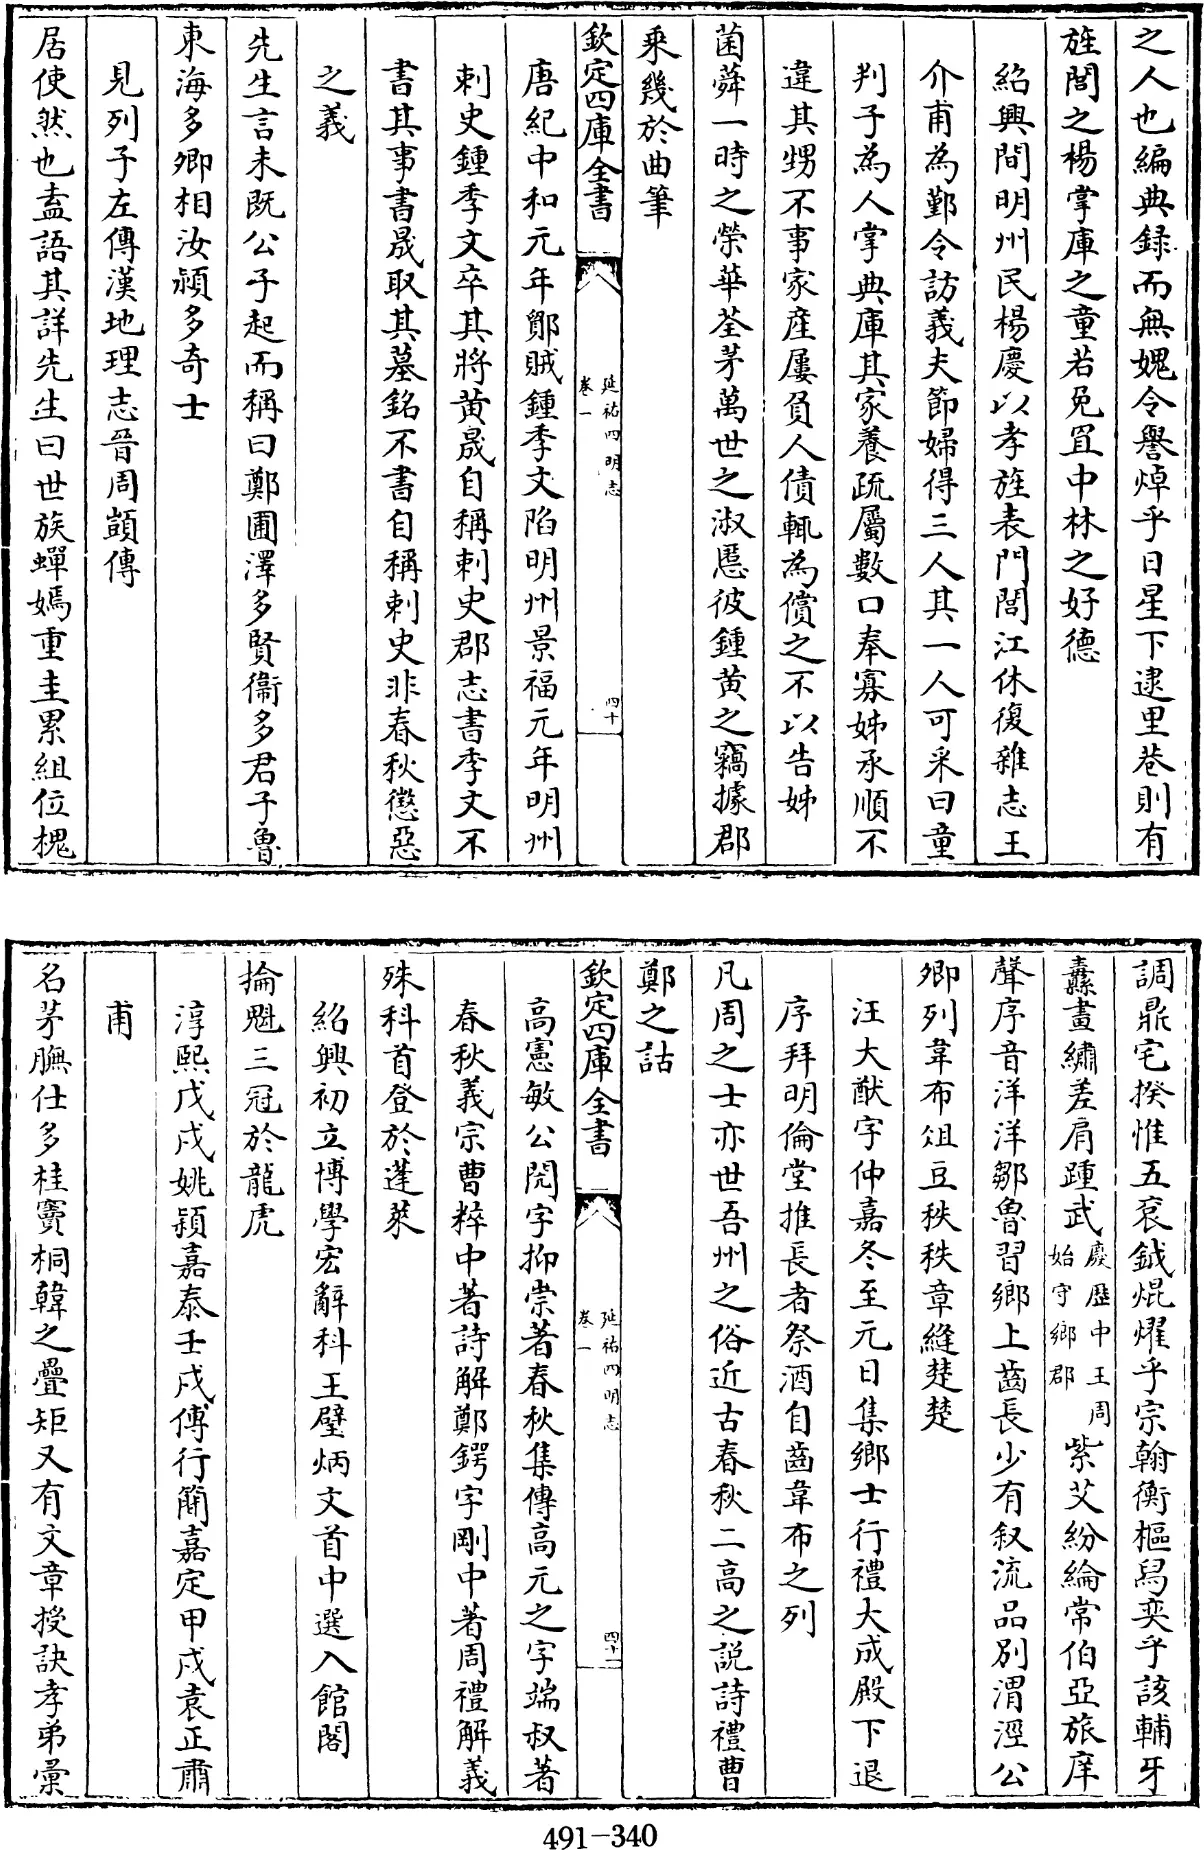 之人也編典録而無媿令譽焯乎日星下逮里巷則有
旌閭之楊掌庫之童若兔罝中林之好德
紹興間明州民楊慶以孝旌表門閭江休復雜志王
介甫為鄞令訪義夫節婦得三人其一人可采曰童
判子為人掌典庫其家養疏屬數口奉寡姊承順不
違其甥不事家産屢負人債輒為償之不以告姊
菌蕣一時之榮華荃茅萬世之淑慝彼鍾黄之竊據郡
乘幾於曲筆
欽定四庫全書
延祐四明志
卷一
四十
唐紀中和元年鄮賊鍾季文陷明州景福元年明州
刺史鍾季文卒其將黄晟自稱刺史郡志書季文不
書其事書晟取其墓銘不書自稱刺史非春秋懲惡
之義
先生言未既公子起而稱曰鄭圃澤多賢衞多君子魯
東海多卿相汝潁多奇士
見列子左傳漢地理志晉周顗傳
居使然也盍語其詳先生曰世族蟬嫣重圭累組位槐
調鼎宅揆惟五衮鉞焜燿乎宗翰衡樞舄奕乎該輔牙
纛畫繡差肩踵武慶歴中王周始守鄉郡紫艾紛綸常伯亞旅庠
聲序音洋洋鄒魯習鄉上齒長少有叙流品别渭涇公
卿列韋布俎豆秩秩章縫楚楚
汪大猷字仲嘉冬至元日集鄉士行禮大成殿下退
序拜明倫堂推長者祭酒自齒韋布之列
凡周之士亦世吾州之俗近古春秋二高之説詩禮曹
鄭之詁
欽定四庫全書
延祐四明志
卷一
四十一
高憲敏公閌字抑崇著春秋集傳高元之字端叔著
春秋義宗曹粹中著詩解鄭鍔字剛中著周禮解義
殊科首登於蓬萊
紹興初立博學宏辭科王璧炳文首中選入館閣
掄魁三冠於龍虎
淳熙戊戌姚頴嘉泰壬戌傅行簡嘉定甲戌袁正肅
甫
名茅膴仕多桂竇桐韓之疊矩又有文章授訣孝弟彚
491-340